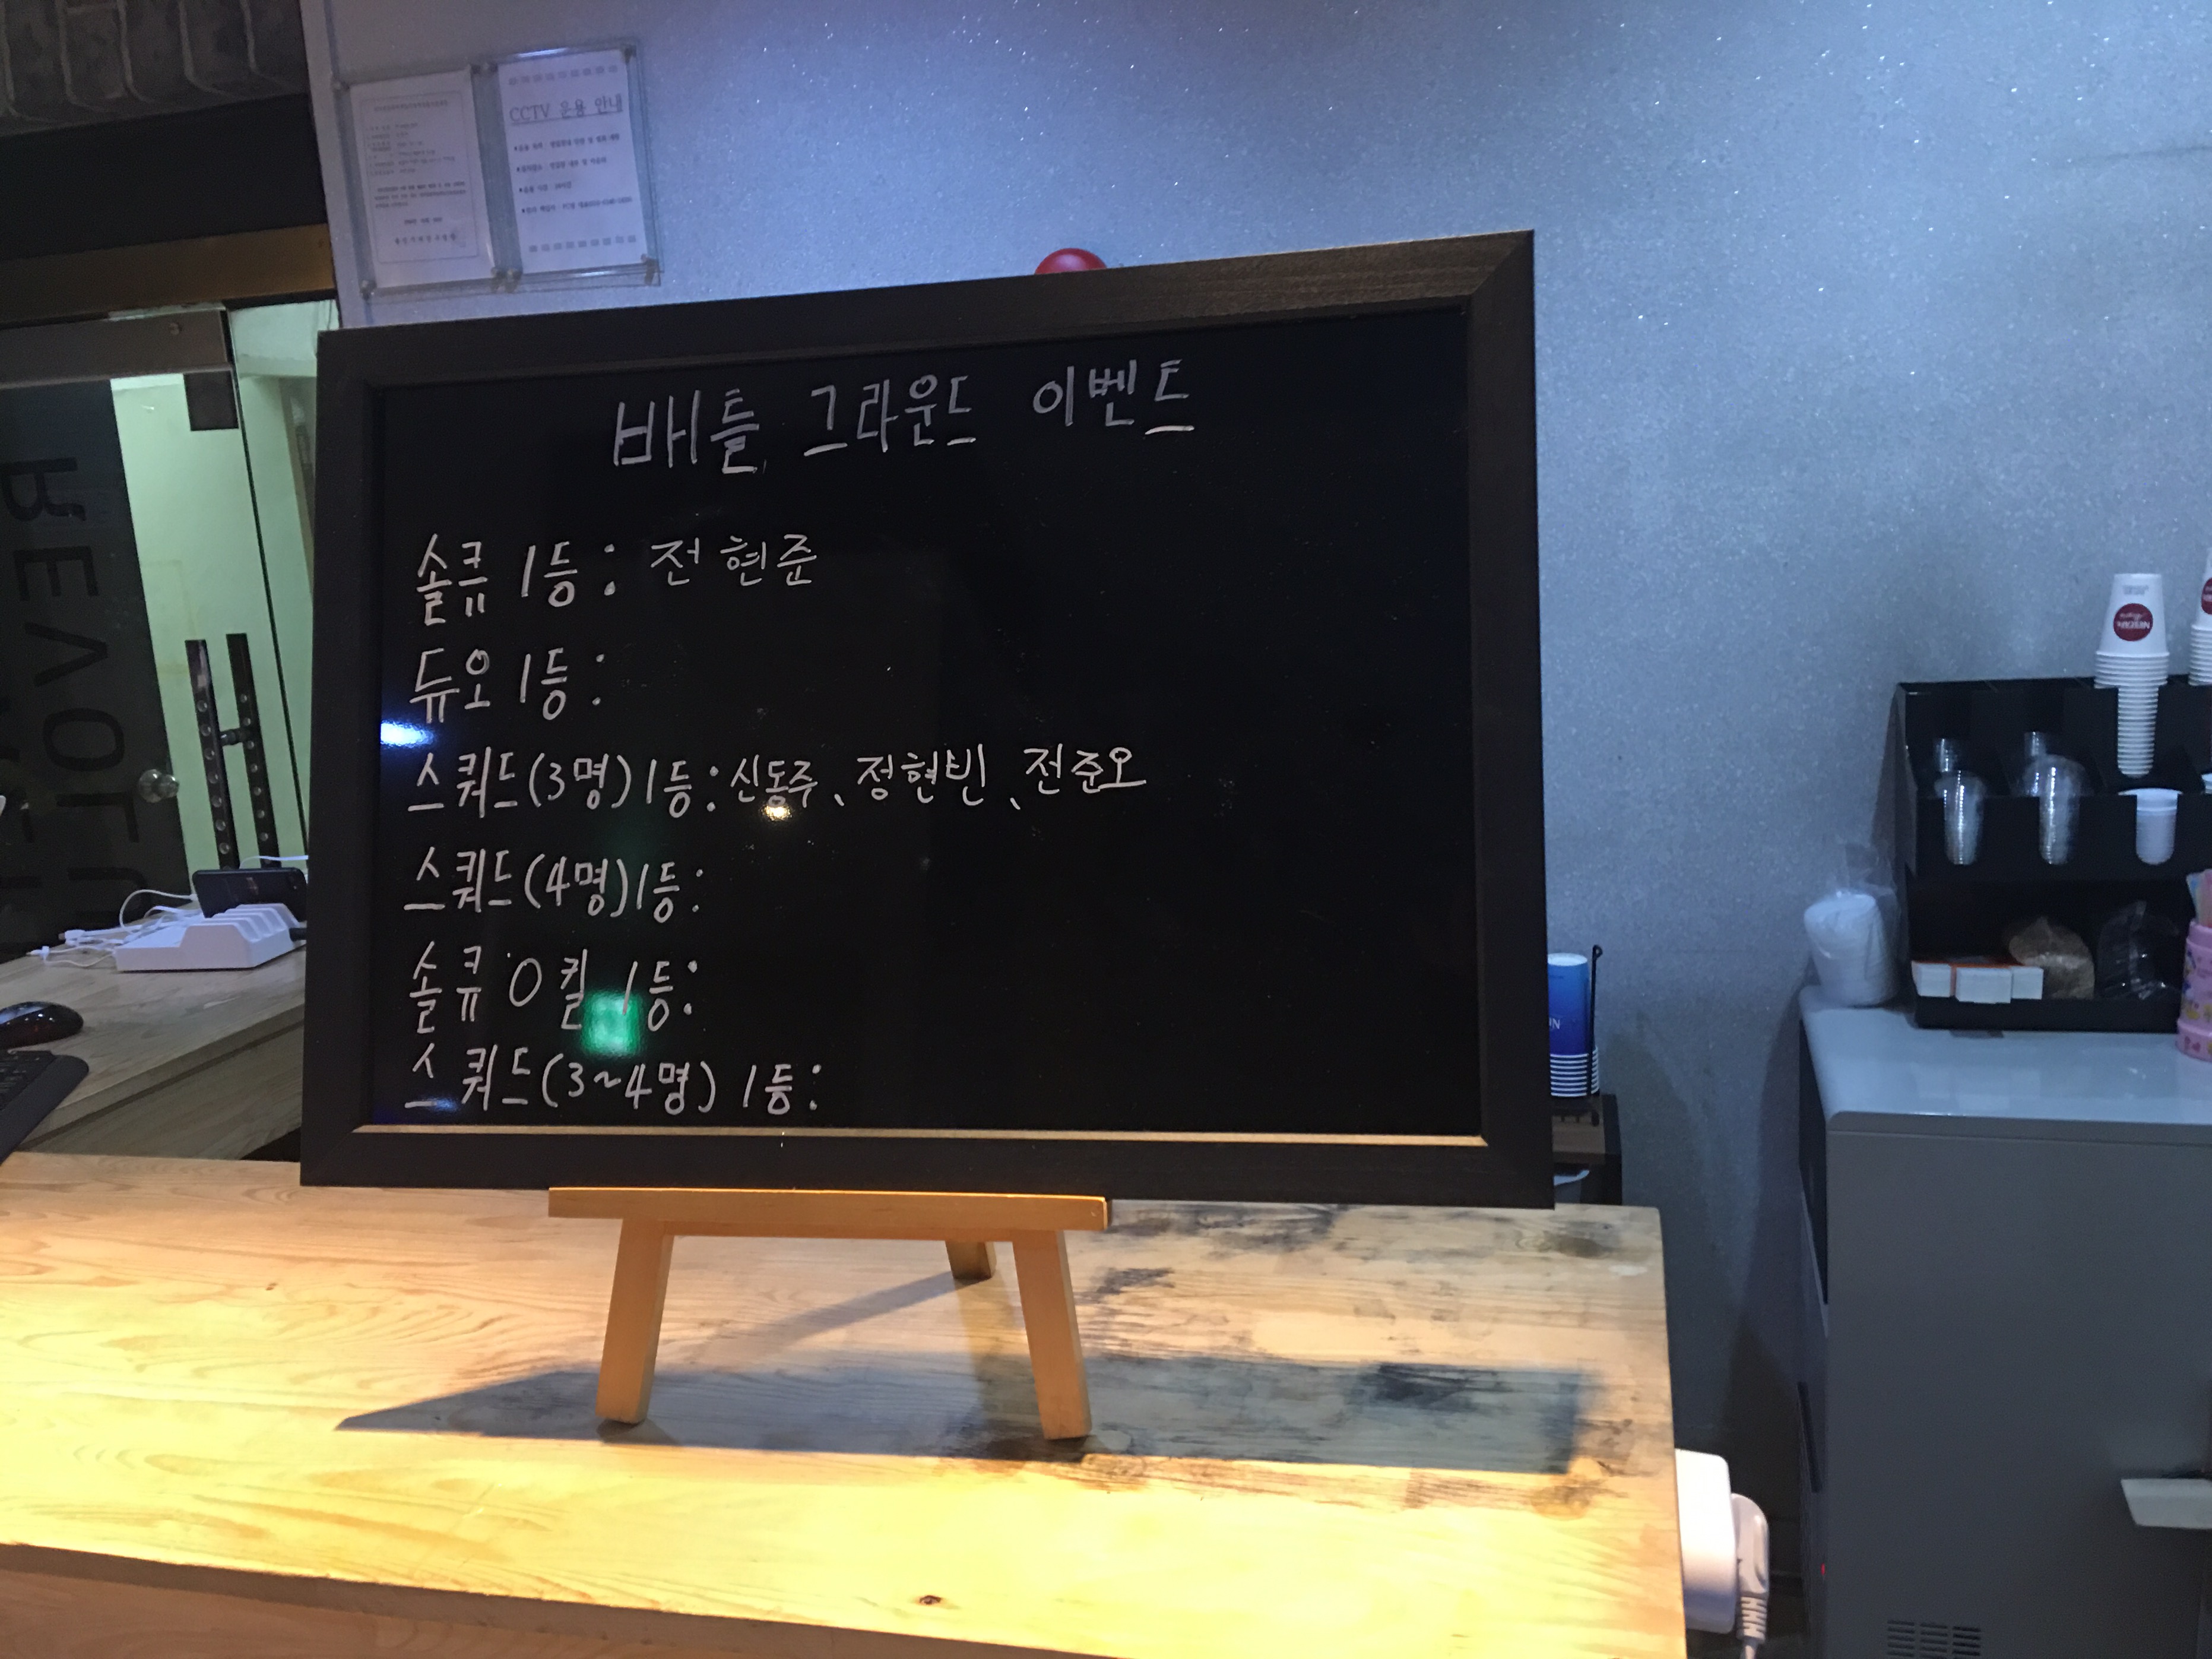 CCTV 운용 안내
배틀 그라운드 이벤트
솔큐 1등: 전현준
듀오 1등:
스쿼드(3명) 1등: 신동주、정현빈、전준오
스쿼드(4명) 1등:
솔큐 0킬 1등:
스쿼드(3~4명) 1등: